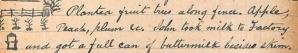 Planted fruit trees along fence. Apple,
Peach, plum etc John took milk to Factory
and got a full can of buttermilk besides skim